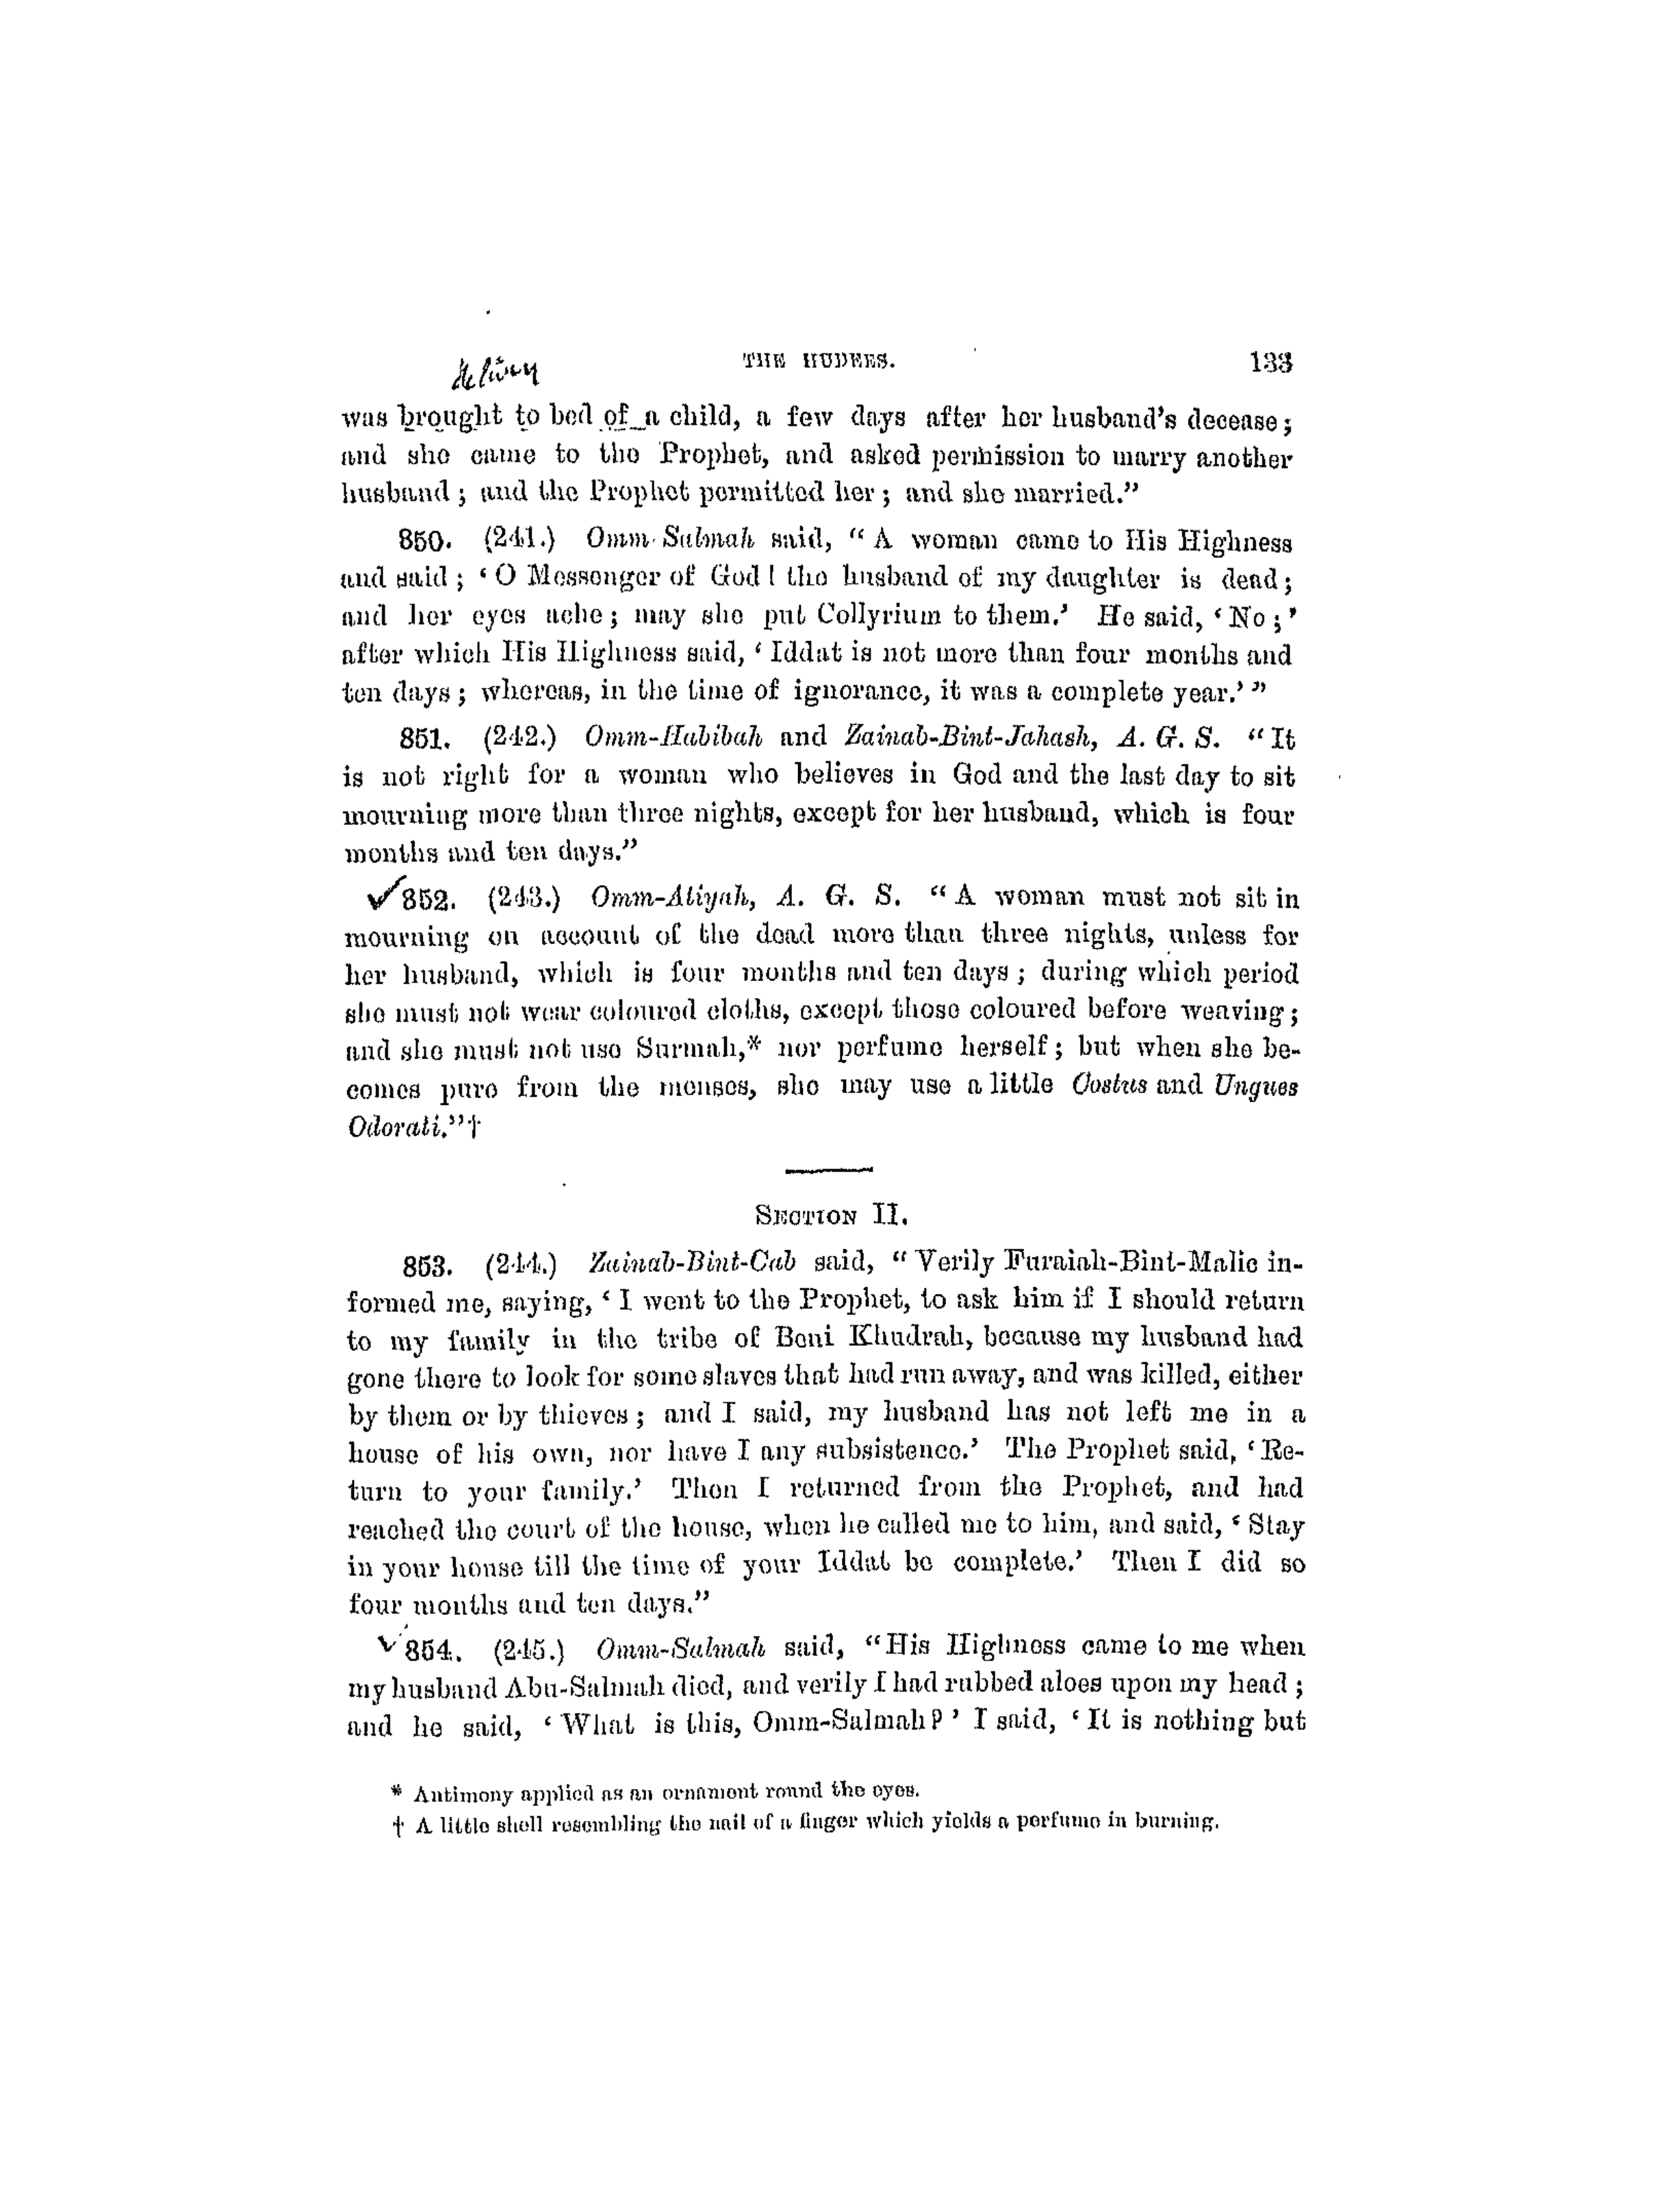 THE HUDEES. 133
delivery
was brought to bed of a child, a few days after her husband's decease;
and she came to the Prophet, and asked permission to marry another
husband; and the Prophet permitted her; and she married."
850. (241.) Omm-Salmah said, "A woman came to His Highness
and said; 'O Messenger of God! the husband of my daughter is dead;
and her eyes ache; may she put Collyrium to them.' He said, 'No;'
after which His Highness said, 'Iddat is not more than four months and
ten days; whereas, in the time of ignorance, it was a complete year.'"
851. (242.) Omm-Habibah and Zainab-Bint-Jahash, A. G. S. "It
is not right for a woman who believes in God and the last day to sit
mourning more than three nights, except for her husband, which is four
months and ten days."
✓852. (243.) Omm-Atiyah, A. G. S. "A woman must not sit in
mourning on account of the dead more than three nights, unless for
her husband, which is four months and ten days; during which period
she must not wear coloured cloths, except those coloured before weaving;
and she must not use Surmah,* nor perfume herself; but when she be-
comes pure from the menses, she may use a little Costus and Ungues
Odorati."†
SECTION II.
853. (244.) Zainab-Bint-Cab said, "Verily Furaiah-Bint-Malic in-
formed me, saying, 'I went to the Prophet, to ask him if I should return
to my family in the tribe of Beni Khudrah, because my husband had
gone there to look for some slaves that had run away, and was killed, either
by them or by thieves; and I said, my husband has not left me in a
house of his own, nor have I any subsistence.' The Prophet said, 'Re-
turn to your family.' Then I returned from the Prophet, and had
reached the court of the house, when he called me to him, and said, 'Stay
in your house till the time of your Iddat be complete.' Then I did so
four months and ten days."
✓854. (245.) Omm-Salmah said, "His Highness came to me when
my husband Abu-Salmah died, and verily I had rubbed aloes upon my head;
and he said, 'What is this, Omm-Salmah?' I said, 'It is nothing but
* Antimony applied as an ornament round the eyes.
† A little shell resembling the nail of a finger which yields a perfume in burning.